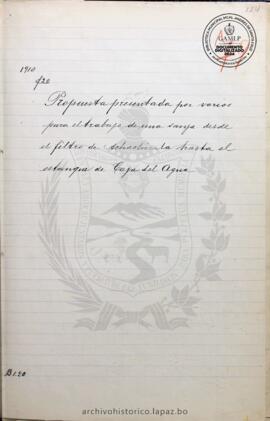 GAMLP
DOCUMENTO
DIGITALIZADO
1910
f20
Propuesta presentada por varios
para el trabajo de una sanja desde
el filtro de hasta el
estanque de Caja del Agua
B120
archivohistorico.lapaz.bo